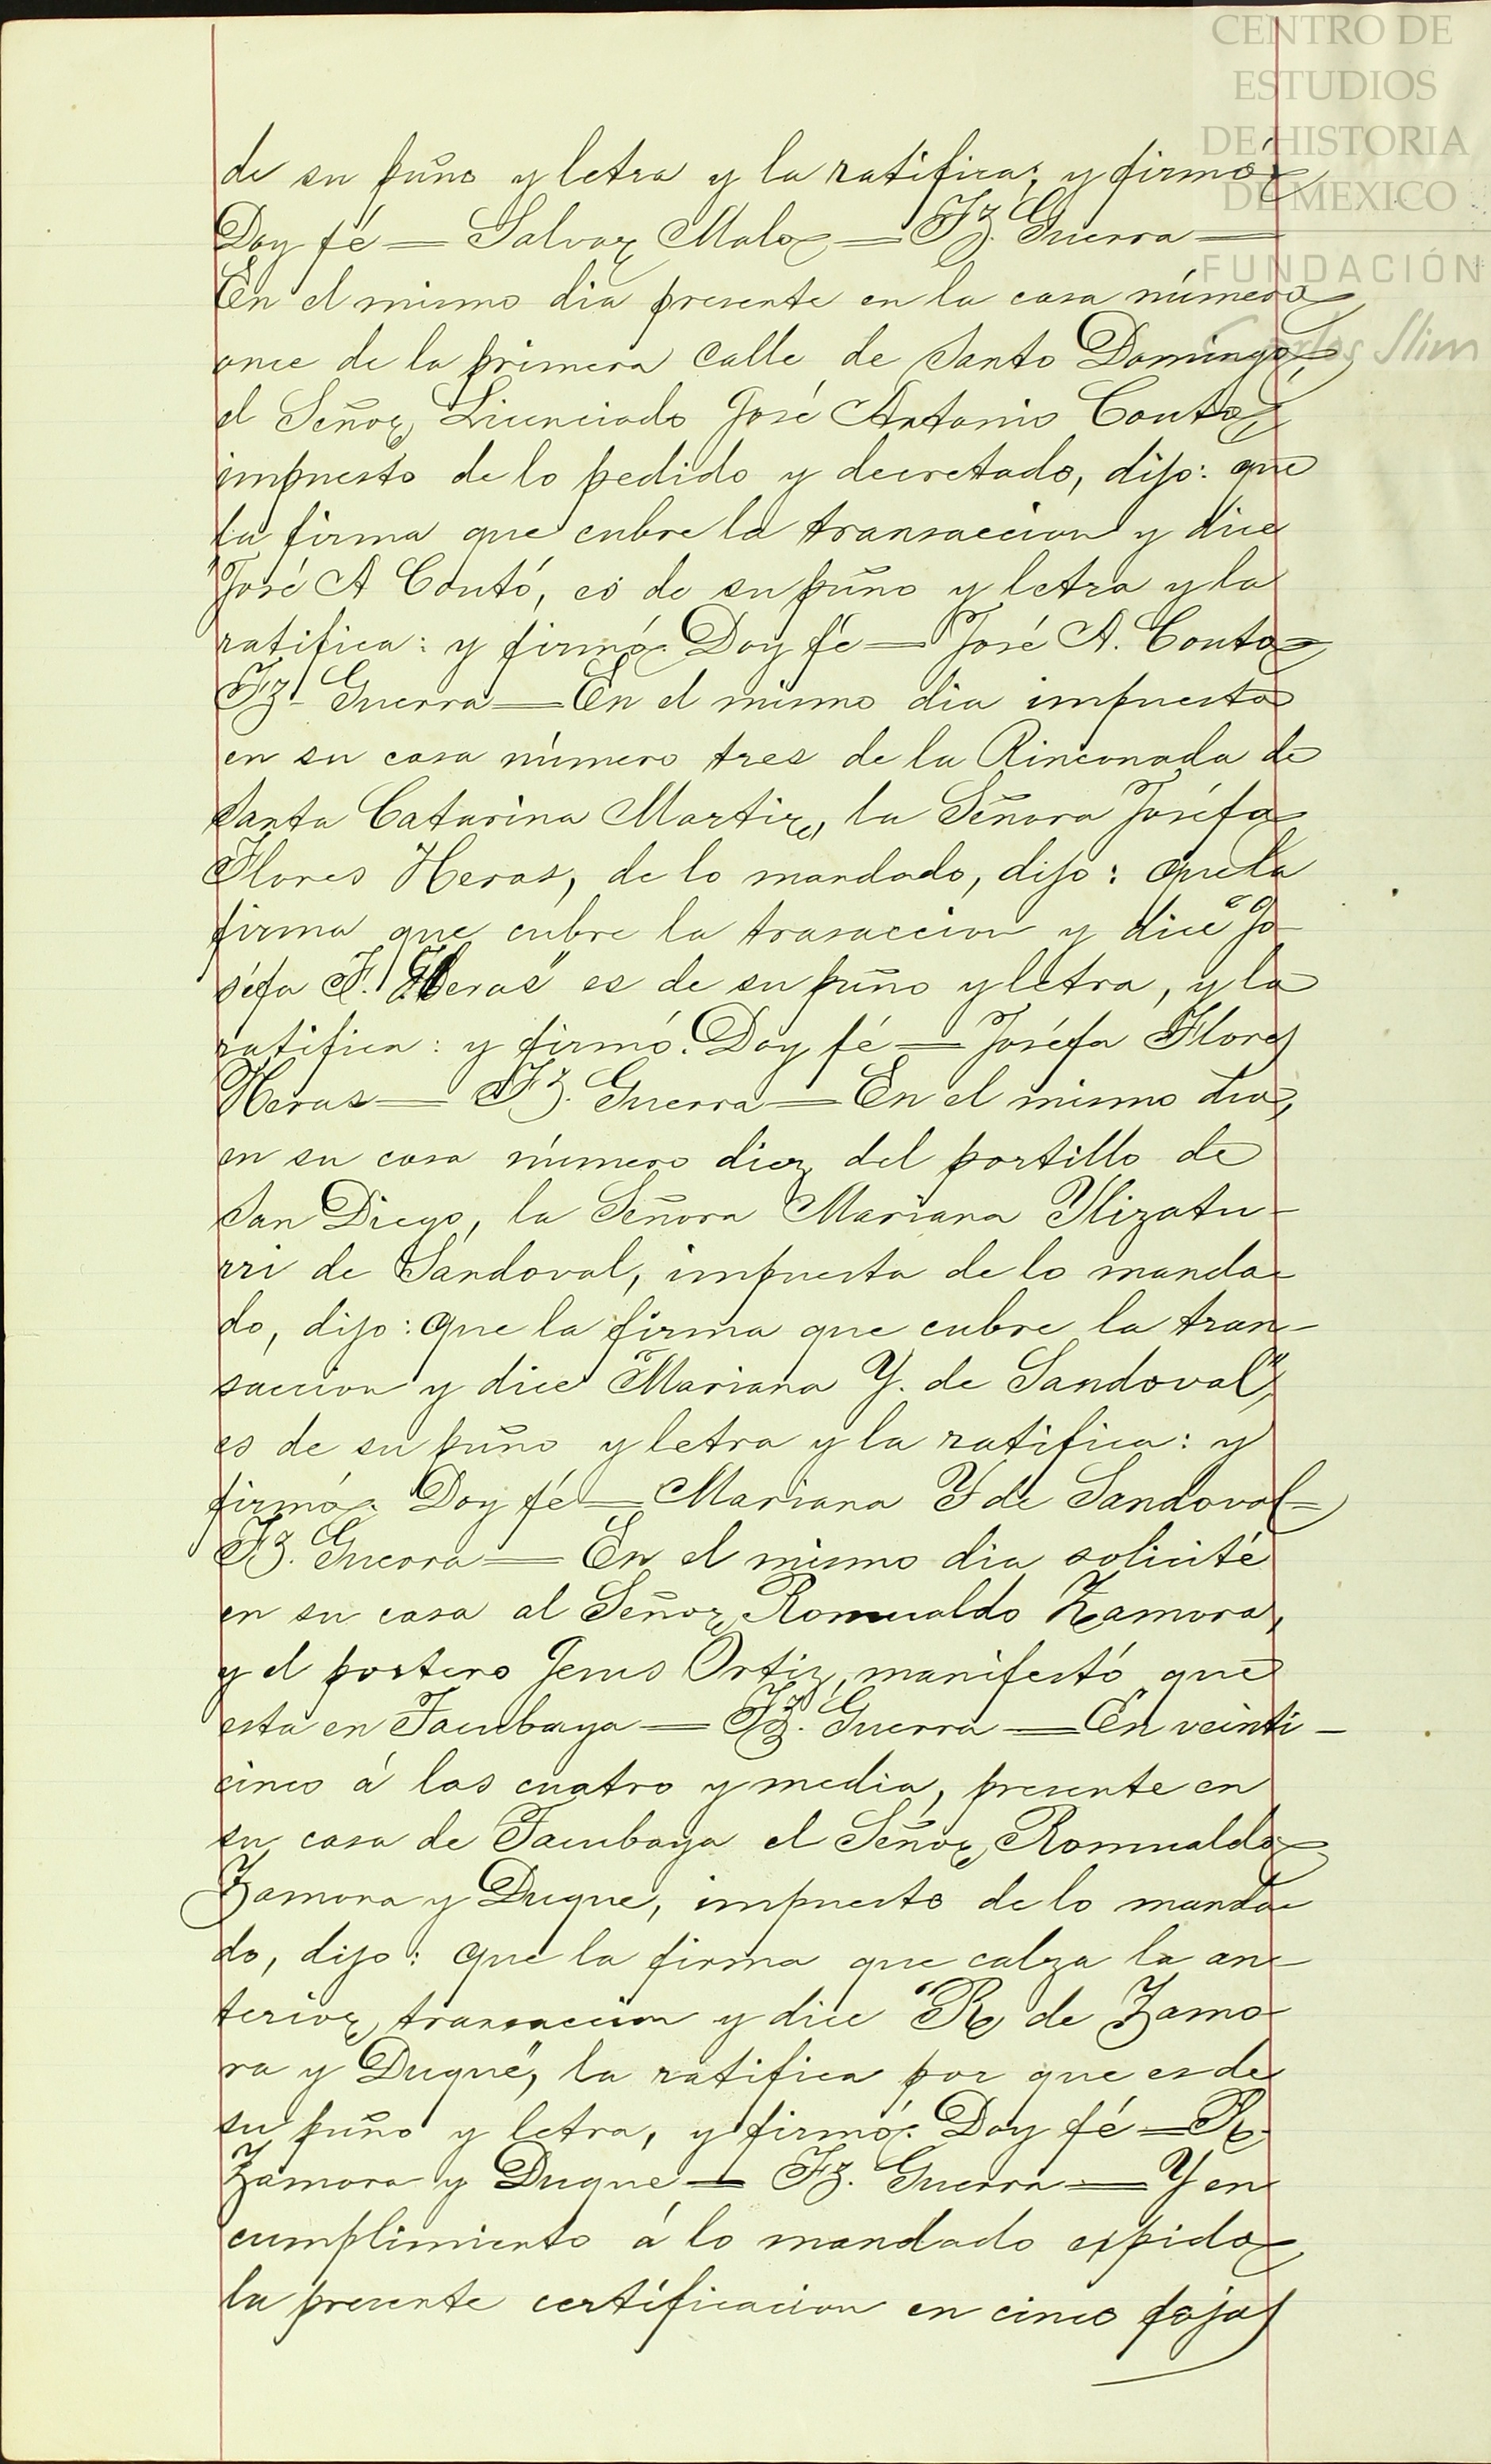 CENTRO DE
ESTUDIOS
DE HISTORIA
DE MEXICO
FUNDACIÓN
Carlos Slim
de su puño y letra y la ratifica; y firmó.
Doy fé = Salvar Malo = Fz. Guerra =
En el mismo dia presente en la casa número
once de la primera calle de Santo Domingo,
el Señor Licenciado José Antonio Couto,
impuesto de lo pedido y decretado, dijo: que
la firma que cubre la transaccion y dice
"José A Coutó, es de su puño y letra y la
ratifica: y firmó. Doy fé = José A. Couto =
Fz. Guerra = En el mismo dia impuesta
en su casa número tres de la Rinconada de
Santa Catarina Martir, la Señora Joséfa
Flores Heras, de lo mandado, dijo: que la
firma que cubre la trasaccion y dice "Jo-
séfa F. Heras" es de su puño y letra, y la
ratifica: y firmó. Doy fé = Joséfa Flores
Heras = Fz. Guerra = En el mismo dia,
en su casa número diez del portillo de
San Diego, la Señora Mariana Ylizatu-
rri de Sandoval, impuesta de lo manda-
do, dijo: que la firma que cubre la tran-
saccion y dice "Mariana Y. de Sandoval",
es de su puño y letra y la ratifica: y
firmó. Doy fé = Mariana Y de Sandoval =
Fz. Guerra = En el mismo dia solicité
en su casa al Señor Romualdo Zamora,
y el portero Jesus Ortiz, manifestó que
esta en Tacubaya = Fz. Guerra = En veinti-
cinco á las cuatro y media, presente en
su casa de Tacubaya el Señor Romualdo
Zamora y Duque, impuesto de lo manda-
do, dijo: que la firma que calza la an-
terior transaccion y dice "R de Zamo-
ra y Duque", la ratifica por que es de
su puño y letra, y firmó. Doy fé = R.
Zamora y Duque = Fz. Guerra = Y en
cumplimiento á lo mandado expido
la presente certificacion en cinco fojas